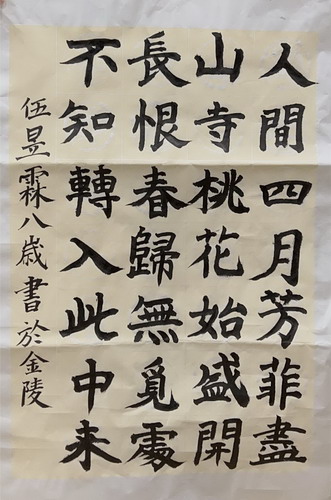 人間四月芳菲盡
山寺桃花始盛開
長恨春歸無覓處
不知轉入此中来
伍昱霖八歲書於金陵